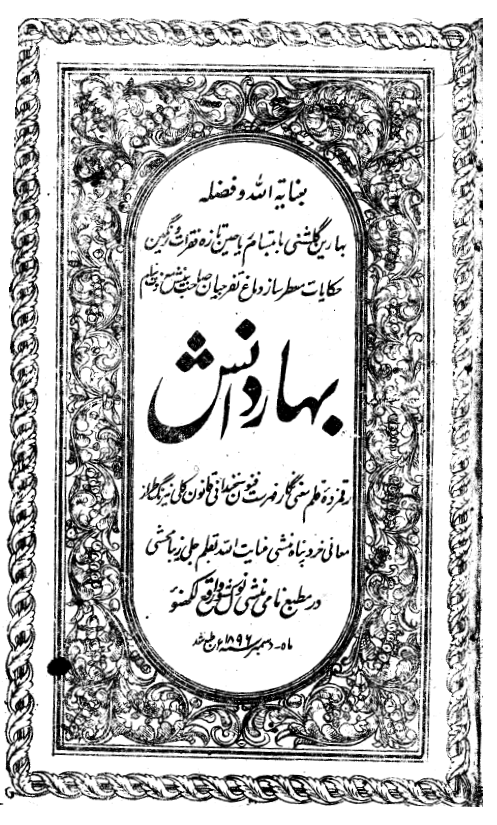 بعنایة الله و فضله
بهارین گلشنی بابتسام یاسمین تازه فقرات رنگین
حکایات معطر ساز دماغ تفرجیان صاحب
بهار دانش
رقمزده قلم سخن نگار فهرست فنون سخندانی قانون
معانی خرد پناه منشی عنایت الله بقلم جلی زیبا محشی
در مطبع نامی منشی نول کشور واقع لکھنؤ
ماه دسمبر سنه ۱۸۹۶ع طبع شد